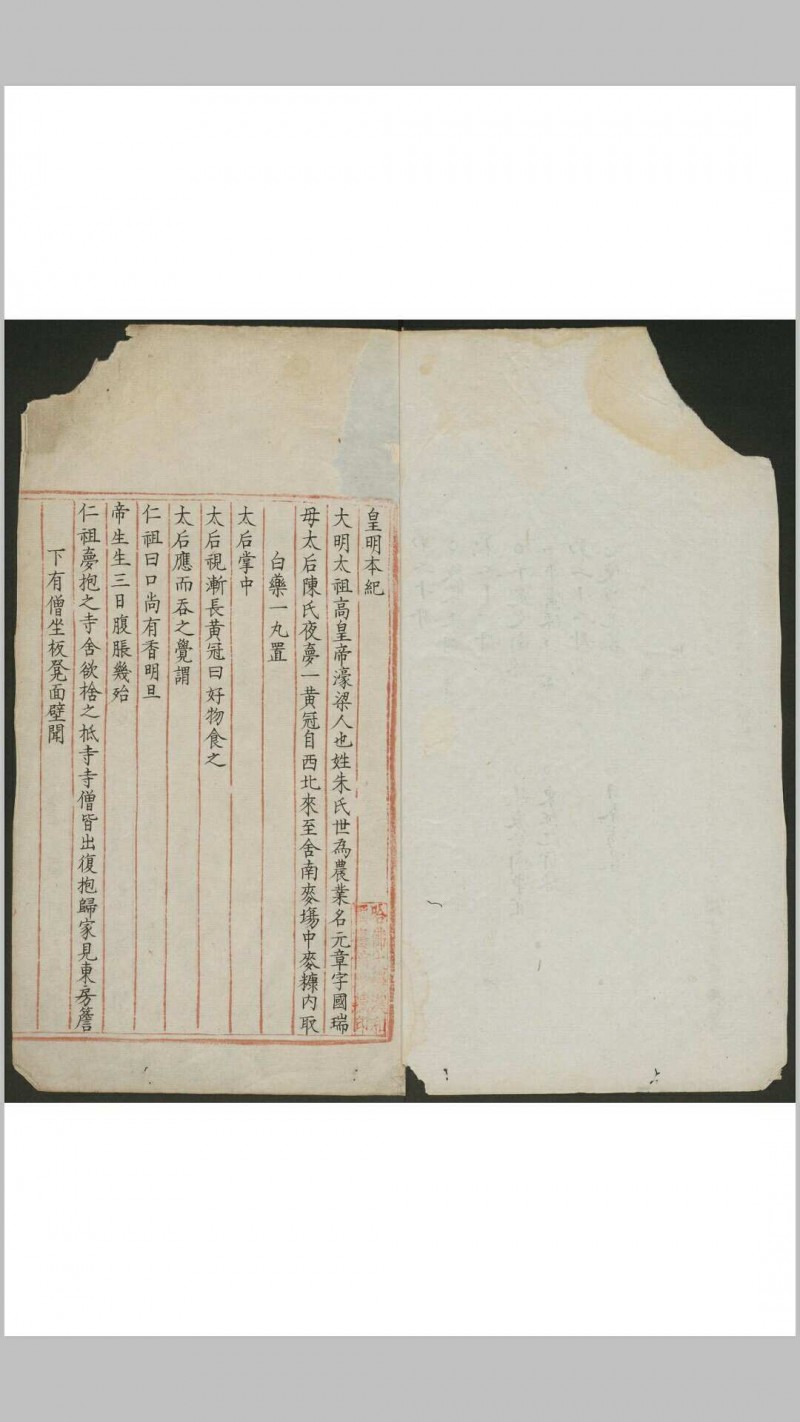 皇明本紀
大明太祖高皇帝濠梁人也姓朱氏世為農業名元章字國瑞
母太后陳氏夜夢一黄冠自西北來至舍南麥場中麥糠内取
白藥一丸置
太后掌中
太后視漸長黄冠曰好物食之
太后應而吞之覺謂
仁祖曰口尚有香明旦
帝生生三日腹脹幾殆
仁祖夢抱之寺舍欲捨之柢寺寺僧皆出復抱歸家見東房簷
下有僧坐板凳面壁聞